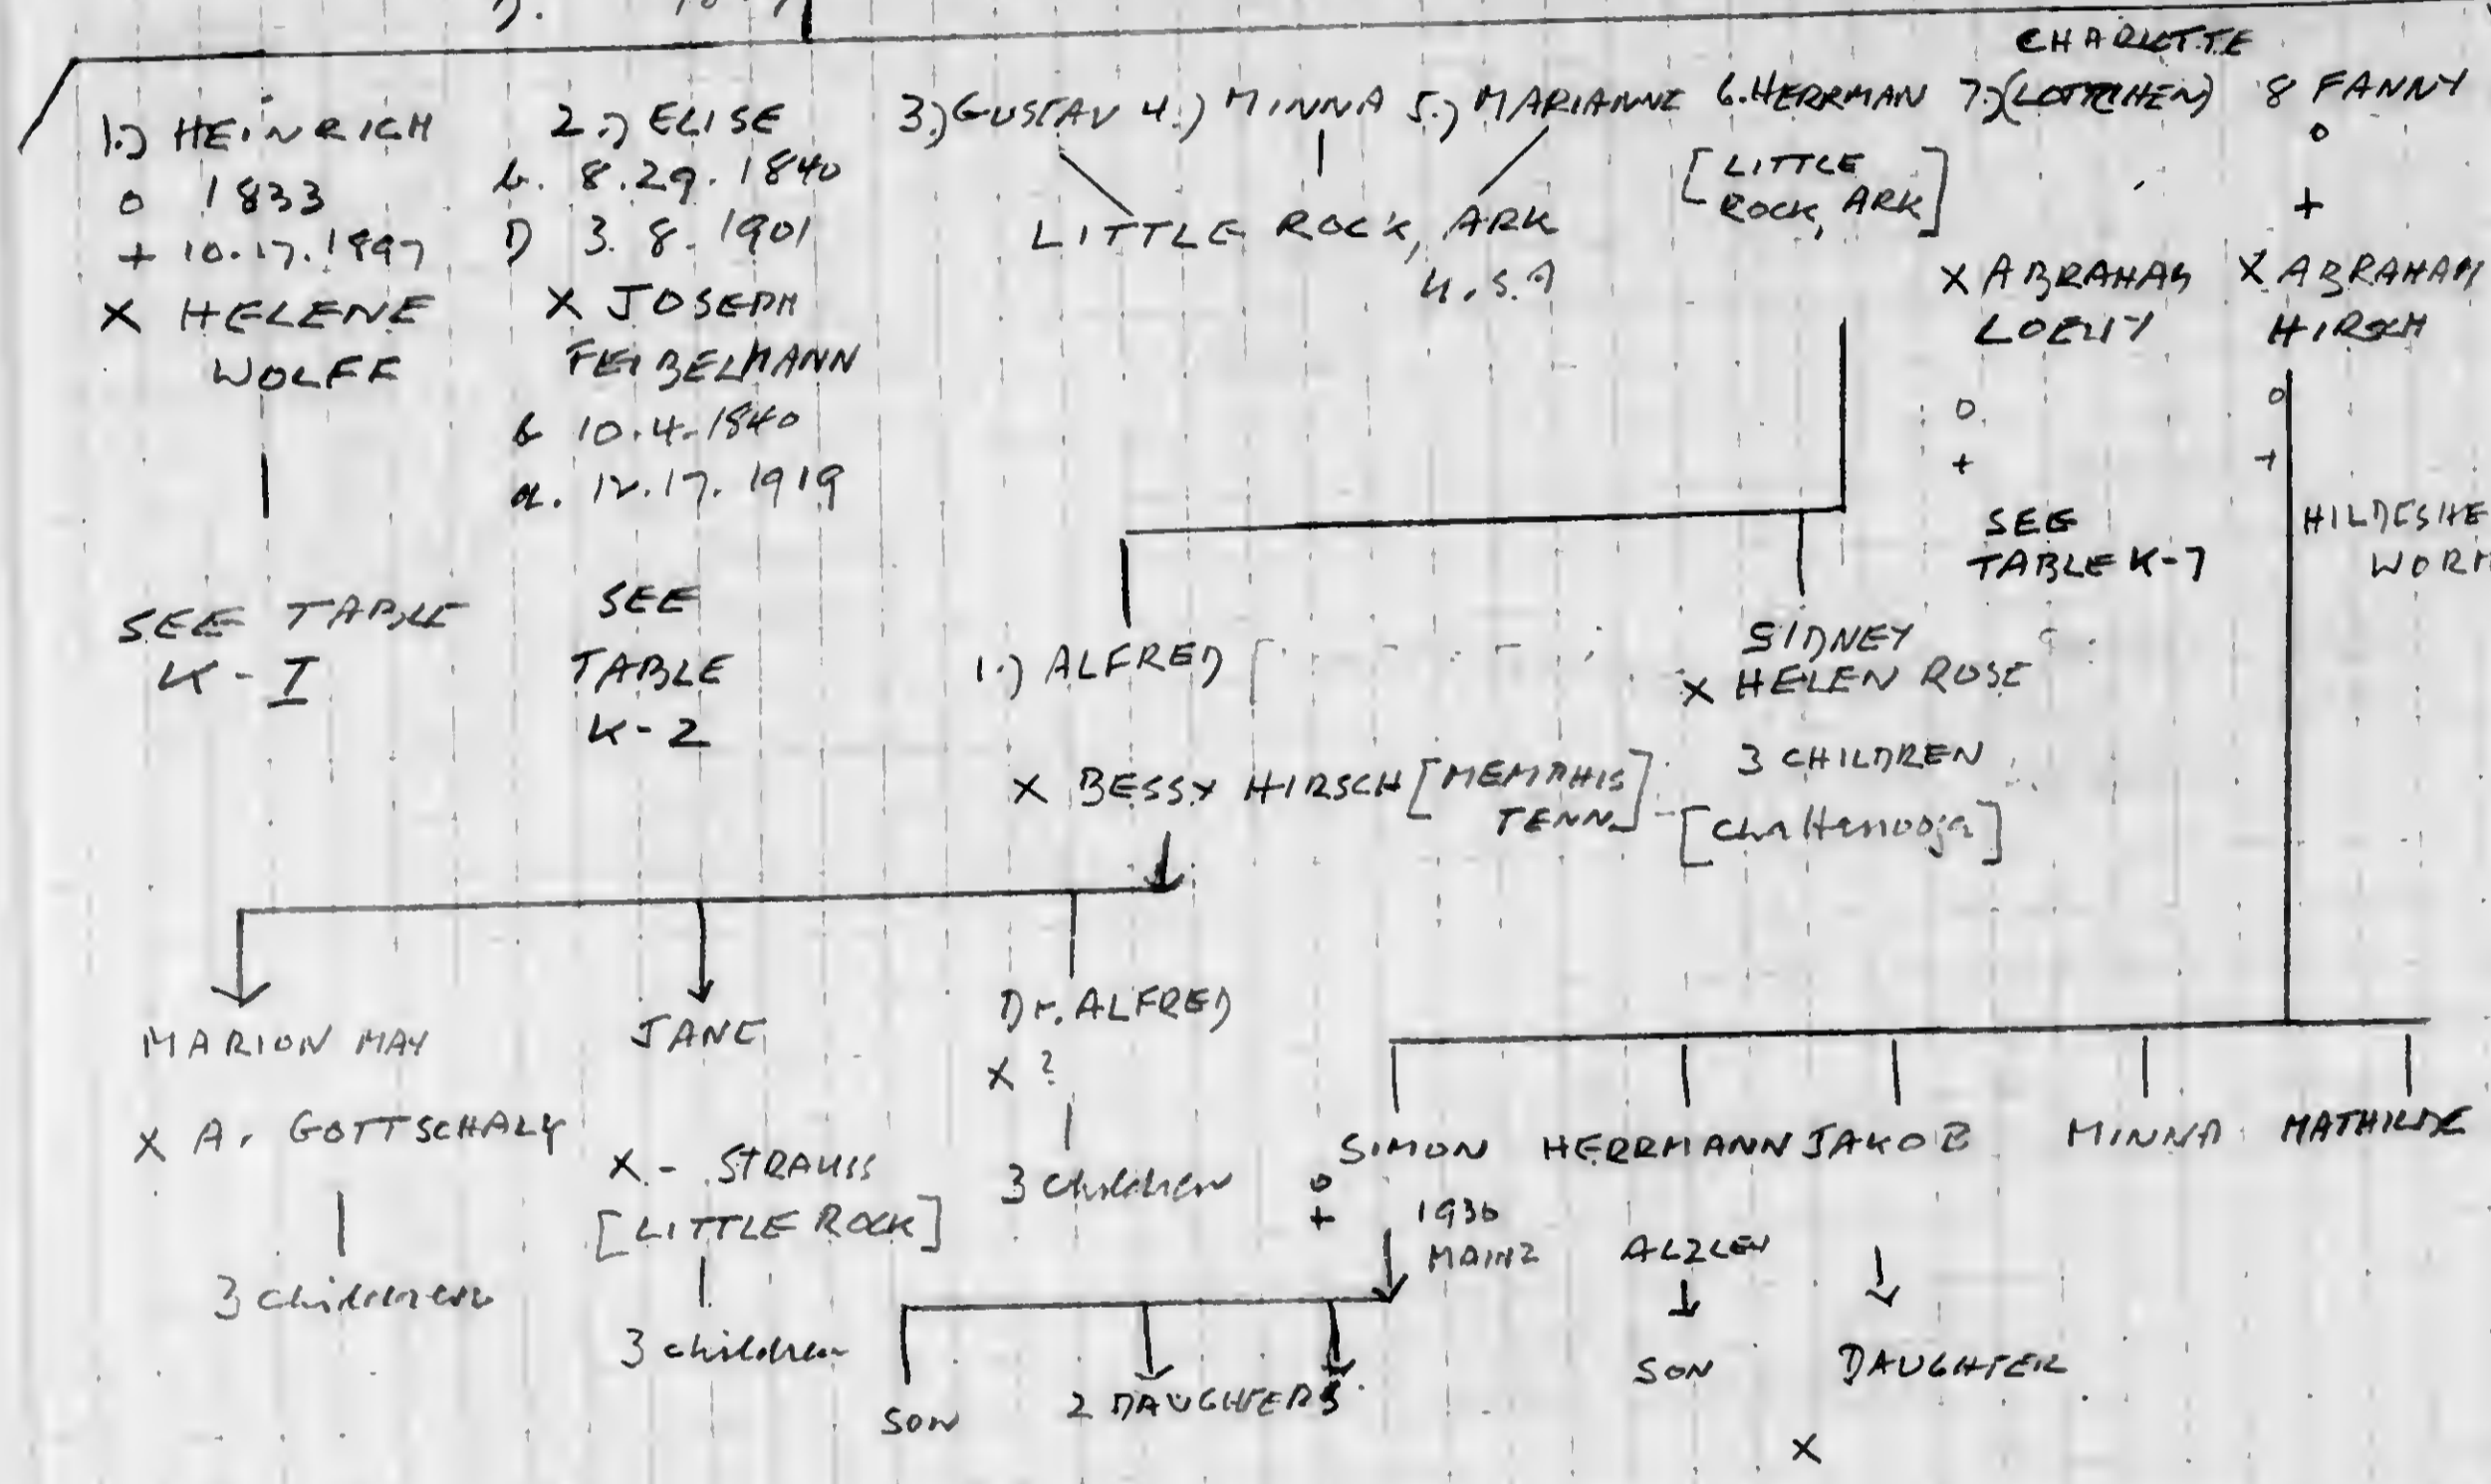 CHARLOTTE
1.) HEINRICH
o 1833
+ 10.17.1897
X HELENE
WOLFF
SEE TABLE
K-I
2.) ELISE
b. 8.29.1840
D 3.8.1901
X JOSEPH
FEIBELMANN
b 10.4.1840
d. 12.17.1919
SEE
TABLE
K-2
3.) GUSTAV 4.) MINNA 5.) MARIANNE 6. HERRMAN 7.) (LOTTCHEN) 8 FANNY
LITTLE ROCK, ARK
U.S.A
[LITTLE
ROCK, ARK]
X ABRAHAM
LOEWY
o
+
SEE
TABLE K-7
o
+
X ABRAHAM
HIRSCH
o
+
HILDESHE
WORM
1.) ALFRED
X BESSY HIRSCH [MEMPHIS
TENN.]
SIDNEY
X HELEN ROSE
3 CHILDREN
[Chattanooga]
MARION MAY
X A. GOTTSCHALK
3 children
JANE
X - STRAUSS
[LITTLE ROCK]
3 children
Dr. ALFRED
X ?
3 children
SIMON HERRMANN JAKOB MINNA MATHILDE
o
+ 1936
MAINZ
SON 2 DAUGHTERS
SON
DAUGHTER
X